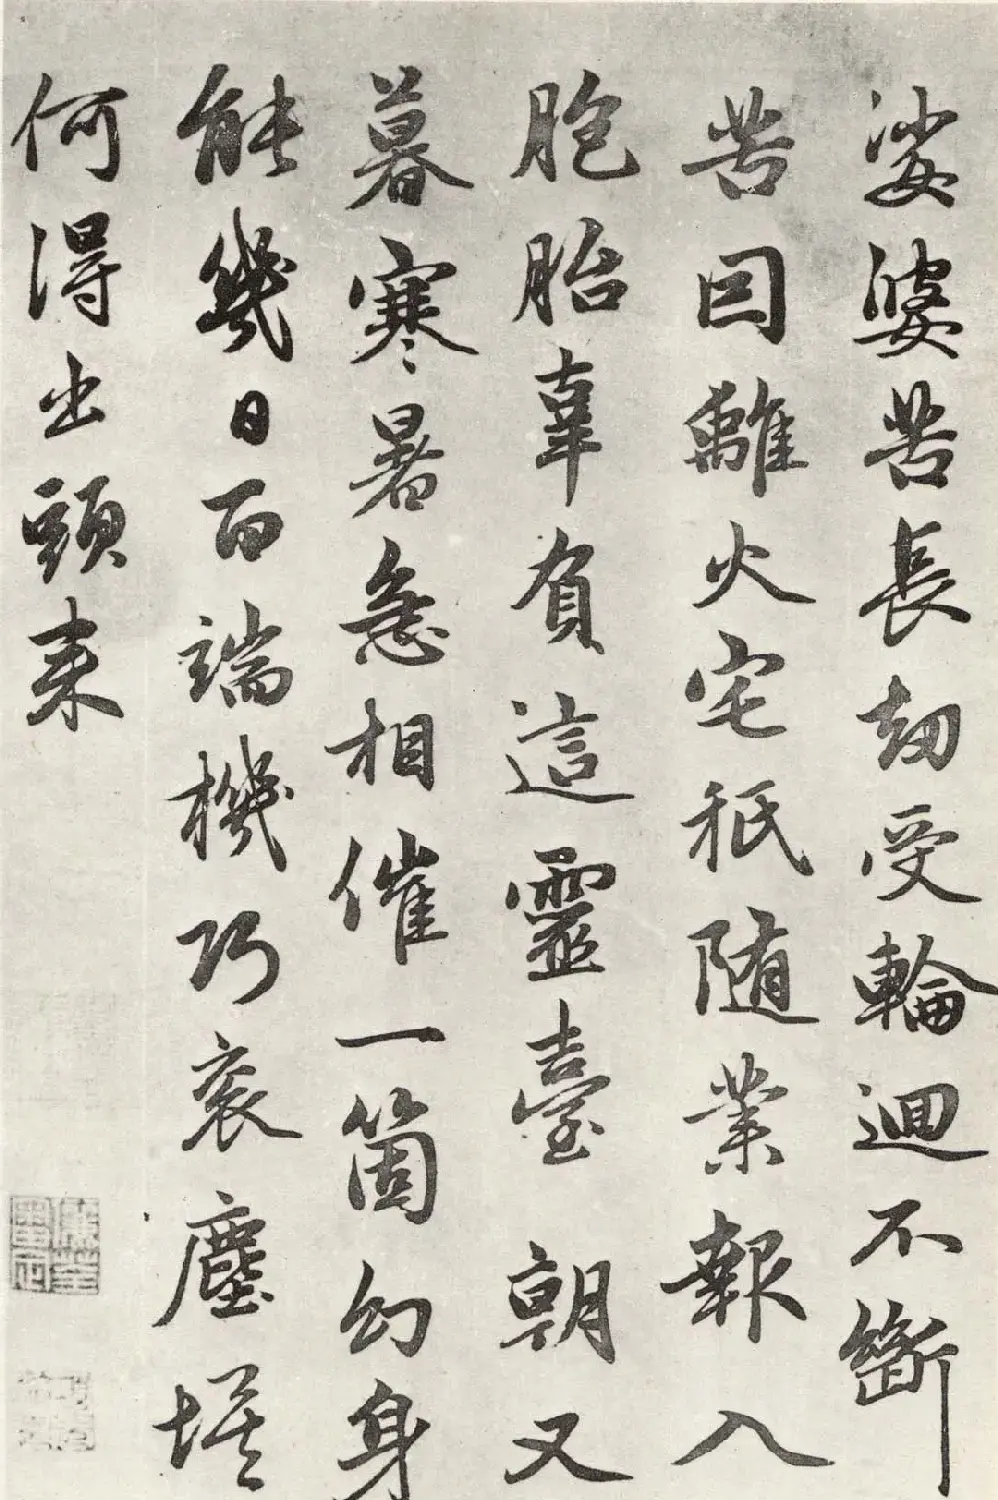 娑婆苦長劫受輪迴不斷
苦因離火宅秖随業報入
胞胎辜負這靈臺朝又
暮寒暑急相催一箇幻身
能幾日百端機巧衮塵埃
何得出頭来